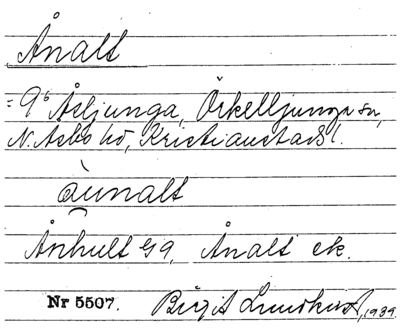 Ånalt
= 9⁶ Åsljunga, Örkelljunga sn,
N. Åsbo hd, Kristianstads l.
àunalt
Ånhult Gg, Ånalt ek.
Nr 5507. Birgit 1939.